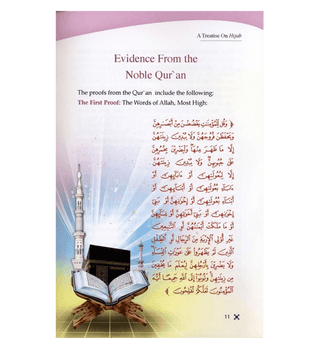 A Treatise On Hijab
Evidence From the
Noble Qur`an
The proofs from the Qur`an include the following:
The First Proof: The Words of Allah, Most High:
﴿ وَقُل لِّلْمُؤْمِنَٰتِ يَغْضُضْنَ مِنْ أَبْصَٰرِهِنَّ
وَيَحْفَظْنَ فُرُوجَهُنَّ وَلَا يُبْدِينَ زِينَتَهُنَّ
إِلَّا مَا ظَهَرَ مِنْهَا وَلْيَضْرِبْنَ بِخُمُرِهِنَّ
عَلَىٰ جُيُوبِهِنَّ وَلَا يُبْدِينَ زِينَتَهُنَّ
إِلَّا لِبُعُولَتِهِنَّ أَوْ ءَابَآئِهِنَّ أَوْ
ءَابَآءِ بُعُولَتِهِنَّ أَوْ أَبْنَآئِهِنَّ أَوْ
أَبْنَآءِ بُعُولَتِهِنَّ أَوْ إِخْوَٰنِهِنَّ أَوْ بَنِىٓ
إِخْوَٰنِهِنَّ أَوْ بَنِىٓ أَخَوَٰتِهِنَّ أَوْ نِسَآئِهِنَّ
أَوْ مَا مَلَكَتْ أَيْمَٰنُهُنَّ أَوِ التَّٰبِعِينَ
غَيْرِ أُولِى الْإِرْبَةِ مِنَ الرِّجَالِ أَوِ الطِّفْلِ
الَّذِينَ لَمْ يَظْهَرُوا عَلَىٰ عَوْرَٰتِ النِّسَآءِ
وَلَا يَضْرِبْنَ بِأَرْجُلِهِنَّ لِيُعْلَمَ مَا يُخْفِينَ
مِن زِينَتِهِنَّ وَتُوبُوٓا إِلَى اللَّهِ جَمِيعًا أَيُّهَ
الْمُؤْمِنُونَ لَعَلَّكُمْ تُفْلِحُونَ ﴾
11